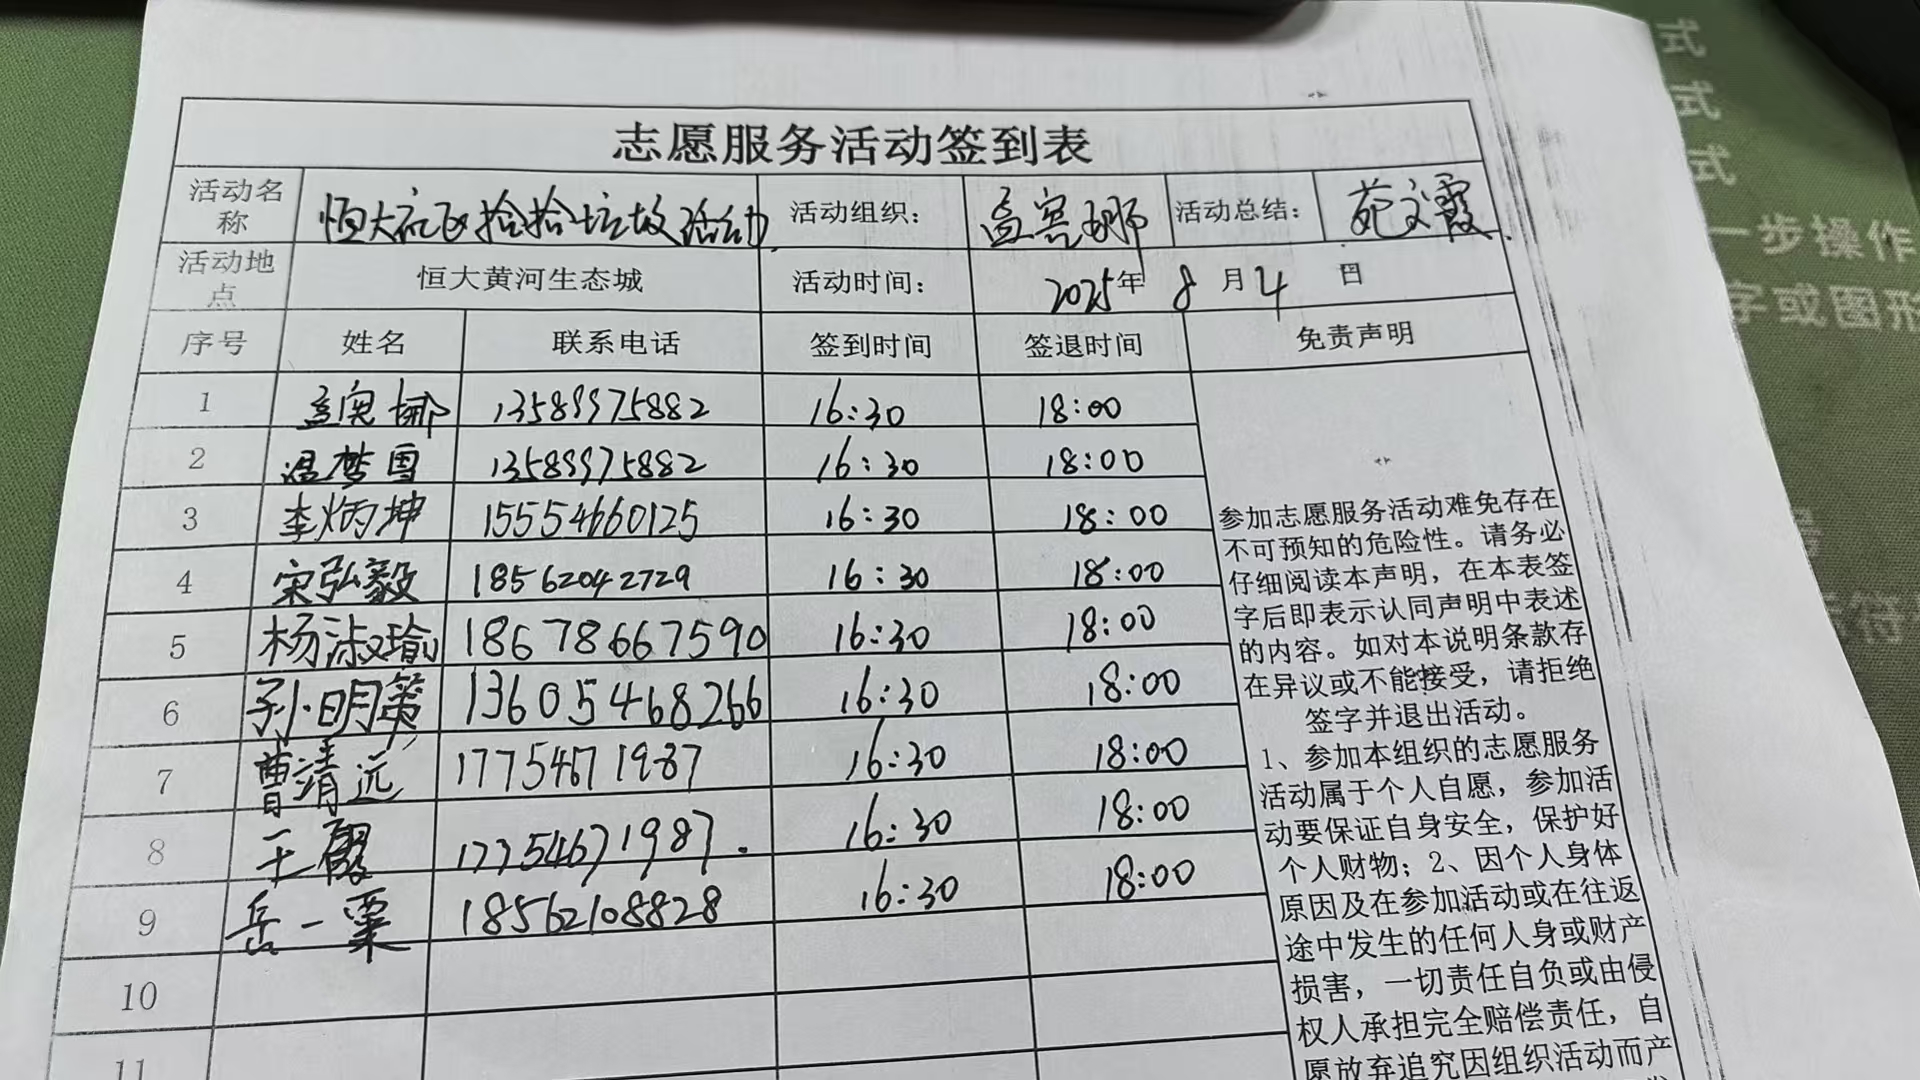 志愿服务活动签到表
活动名称 恒大社区捡拾垃圾活动 活动组织： 孟 娜 活动总结： 苑文霞
活动地点 恒大黄河生态城 活动时间： 2025年 8月4日
序号 姓名 联系电话 签到时间 签退时间 免责声明
1 孟 娜 13589975882 16:30 18:00
2 温梦雪 13589975882 16:30 18:00
3 李炳坤 15554660125 16:30 18:00
4 宋弘毅 18562042729 16:30 18:00
5 杨淑瑜 18678667590 16:30 18:00
6 孙明 13605468266 16:30 18:00
7 曹靖远 17754671987 16:30 18:00
8 王霞 17754671987. 16:30 18:00
9 岳一粟 18562108828 16:30 18:00
10
11
参加志愿服务活动难免存在
不可预知的危险性。请务必
仔细阅读本声明，在本表签
字后即表示认同声明中表述
的内容。如对本说明条款存
在异议或不能接受，请拒绝
签字并退出活动。
1、参加本组织的志愿服务
活动属于个人自愿，参加活
动要保证自身安全，保护好
个人财物；2、因个人身体
原因及在参加活动或在往返
途中发生的任何人身或财产
损害，一切责任自负或由侵
权人承担完全赔偿责任，自
愿放弃追究因组织活动而产
式
式
式
一步操作
字或图形
符